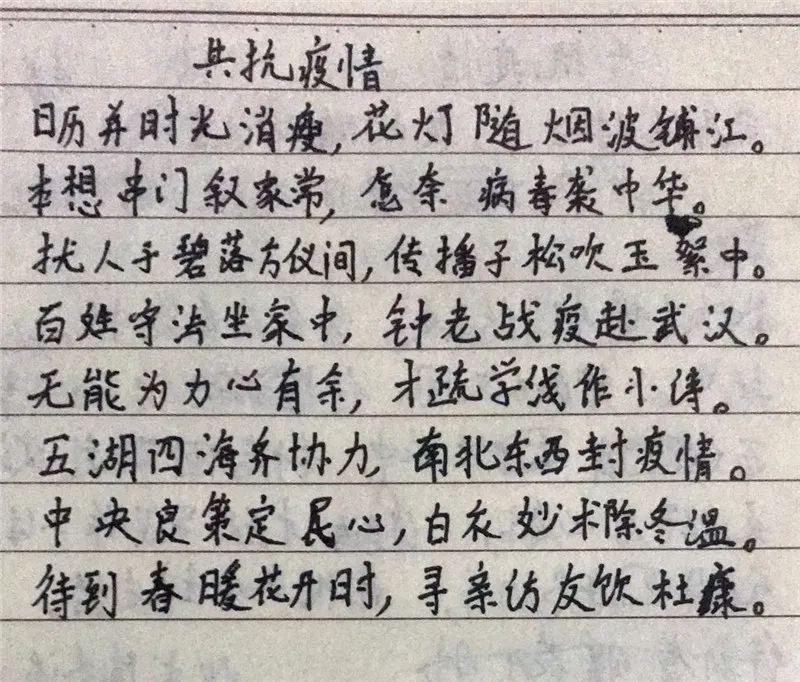 共抗疫情
日历并时光消瘦,花灯随烟波铺江。
本想串门叙家常,怎奈病毒袭中华。
扰人于碧落方仪间,传播于松吹玉絮中。
百姓守法坐家中,钟老战疫赴武汉。
无能为力心有余,才疏学浅作小诗。
五湖四海齐协力,南北东西封疫情。
中央良策定民心,白衣妙术除冬温。
待到春暖花开时,寻亲仿友饮杜康。